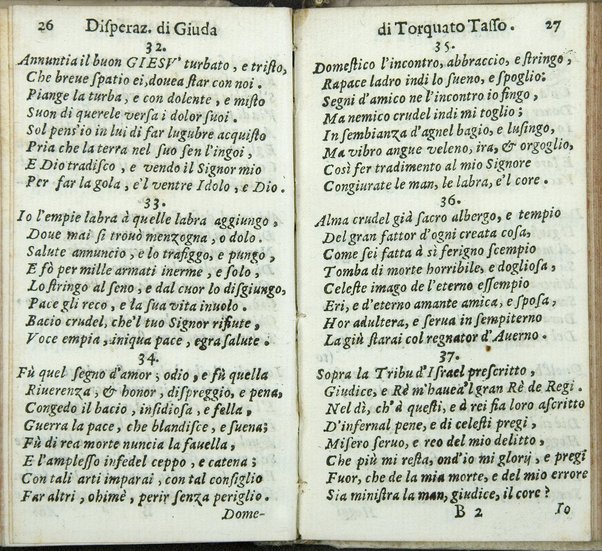 26 Disperaz. di Giuda
32.
Annuntia il buon GIESV' turbato, e tristo,
Che breue spatio ei, douea star con noi.
Piange la turba, e con dolente, e misto
Suon di querele versa i dolor suoi.
Sol pens'io in lui di far lugubre acquisto
Pria che la terra nel suo sen l'ingoi,
E Dio tradisco, e vendo il Signor mio
Per far la gola, e'l ventre Idolo, e Dio.
33.
Io l'empie labra à quelle labra aggiungo,
Doue mai si trouò menzogna, o dolo.
Salute annuncio, e lo trafiggo, e pungo,
E fò per mille armati inerme, e solo,
Lo stringo al seno, e dal cuor lo disgiungo,
Pace gli reco, e la sua vita inuolo.
Bacio crudel, che'l tuo Signor rifiute,
Voce empia, iniqua pace, egra salute.
34.
Fù quel segno d'amor, odio, e fù quella
Riuerenza, & honor, dispreggio, e pena,
Congedo il bacio, insidiosa, e fella,
Guerra la pace, che blandisce, e suena;
Fù di rea morte nuncia la fauella,
E l'amplesso infedel ceppo, e catena;
Con tali arti imparai, con tal consiglio
Far altri, ohimè, perir senza periglio.
Dome-
di Torquato Tasso. 27
35.
Domestico l'incontro, abbraccio, e stringo,
Rapace ladro indi lo sueno, e spoglio:
Segni d'amico ne l'incontro io fingo,
Ma nemico crudel indi mi toglio;
In sembianza d'agnel bagio, e lusingo,
Ma vibro angue veleno, ira, & orgoglio,
Così fer tradimento al mio Signore
Congiurate le man, le labra, e'l core.
36.
Alma crudel già sacro albergo, e tempio
Del gran fattor d'ogni creata cosa,
Come sei fatta d sì ferigno scempio
Tomba di morte horribile, e dogliosa,
Celeste imago de l'eterno essempio
Eri, e d'eterno amante amica, e sposa,
Hor adultera, e serua in sempiterno
La giù starai col regnator d'Auerno.
37.
Sopra la Tribu d'Israel prescritto,
Giudice, e Rè m'hauea'l gran Rè de Regi.
Nel dì, ch'à questi, e à rei fia loro ascritto
D'infernal pene, e di celesti pregi,
Misero seruo, e reo del mio delitto,
Che più mi resta, ond'io mi glorij, e pregi
Fuor, che de la mia morte, e del mio errore
Sia ministra la man, giudice, il core?
B 2 Io